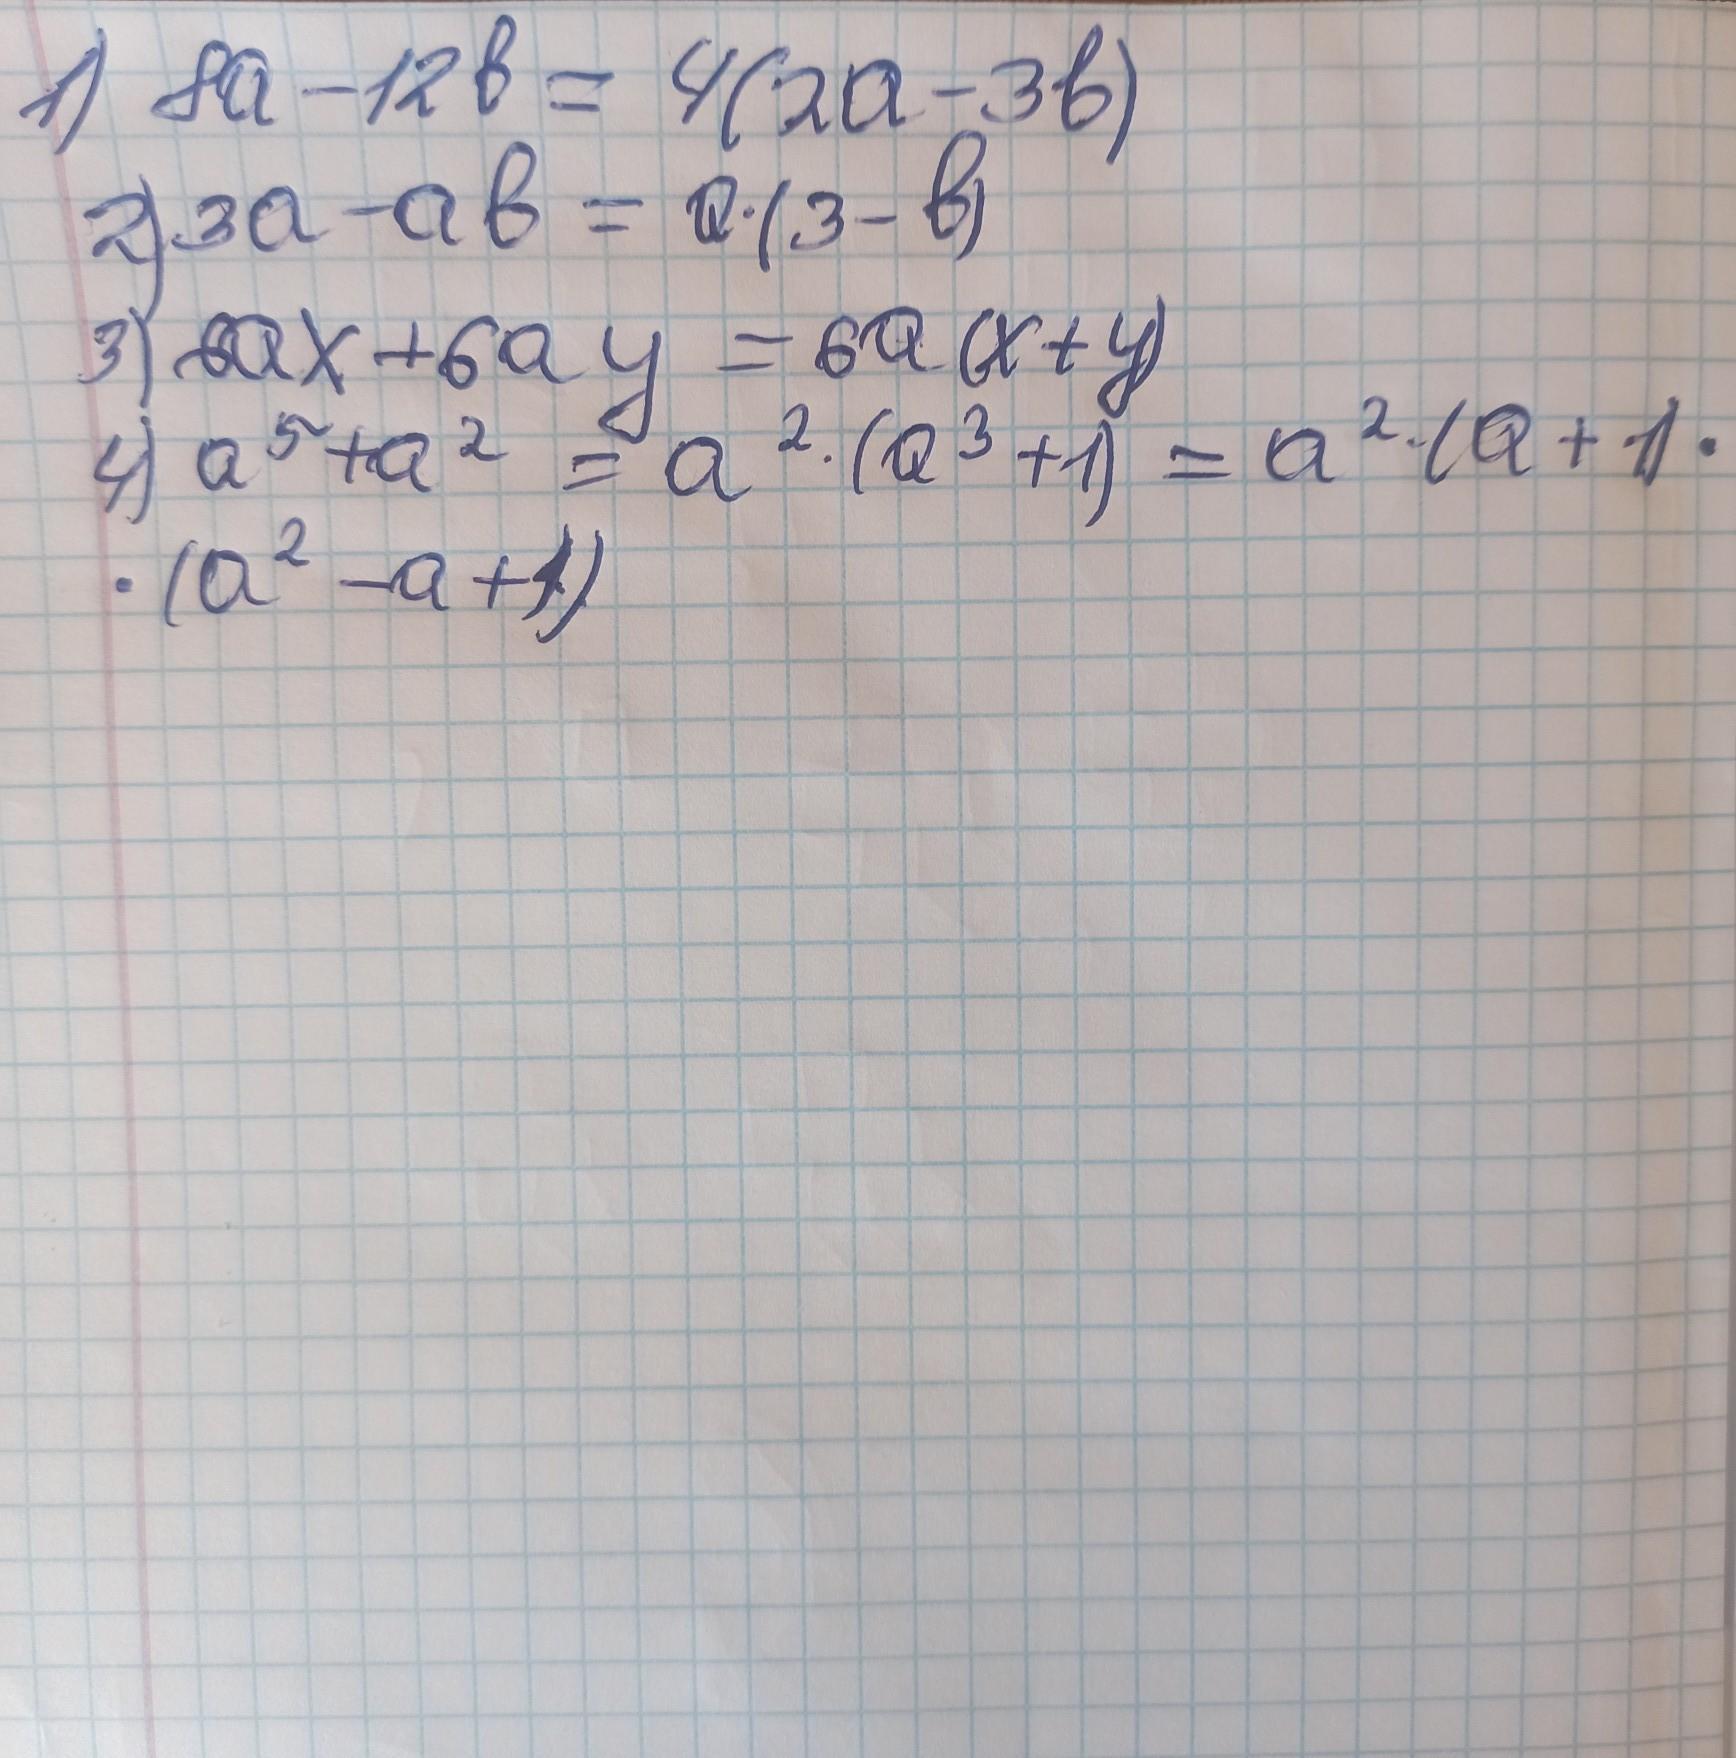 1) 8a - 12b = 4(2a - 3b)
2) 3a - ab = a·(3 - b)
3) 6ax + 6ay = 6a(x + y)
4) a⁵ + a² = a²·(a³ + 1) = a²·(a + 1)·
·(a² - a + 1)